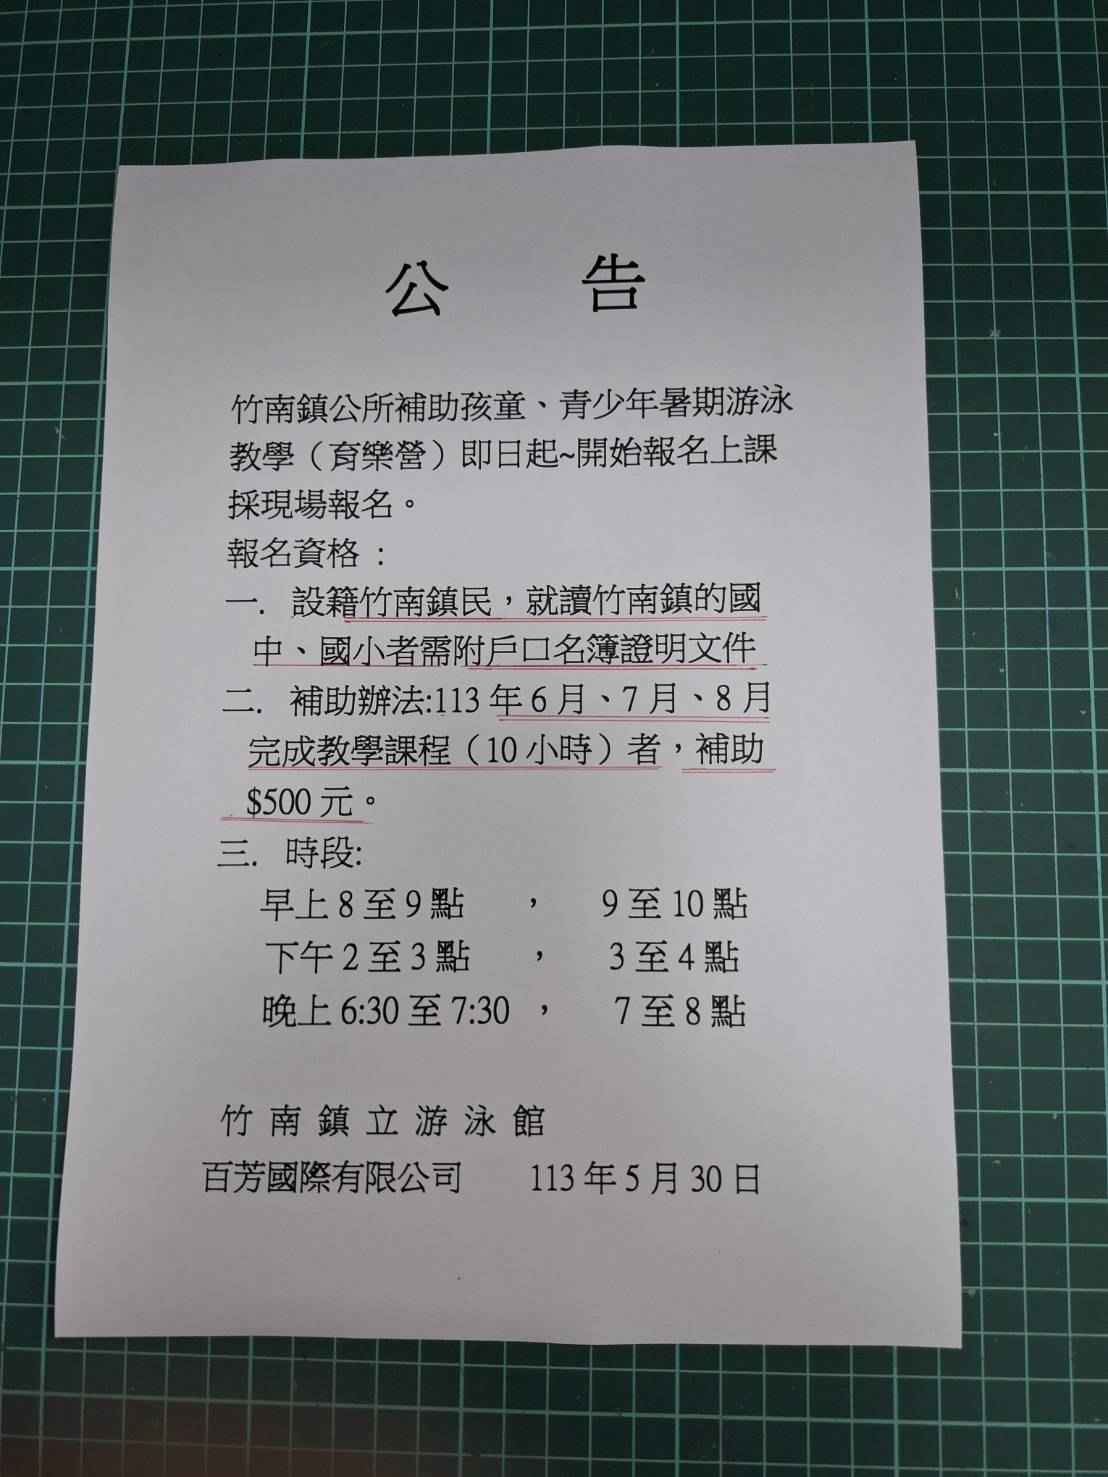 公 告
竹南鎮公所補助孩童、青少年暑期游泳
教學（育樂營）即日起~開始報名上課
採現場報名。
報名資格：
一. 設籍竹南鎮民，就讀竹南鎮的國
中、國小者需附戶口名簿證明文件
二. 補助辦法:113年6月、7月、8月
完成教學課程（10小時）者，補助
$500元。
三. 時段:
早上8至9點 ， 9至10點
下午2至3點 ， 3至4點
晚上6:30至7:30 ， 7至8點
竹南鎮立游泳館
百芳國際有限公司 113年5月30日